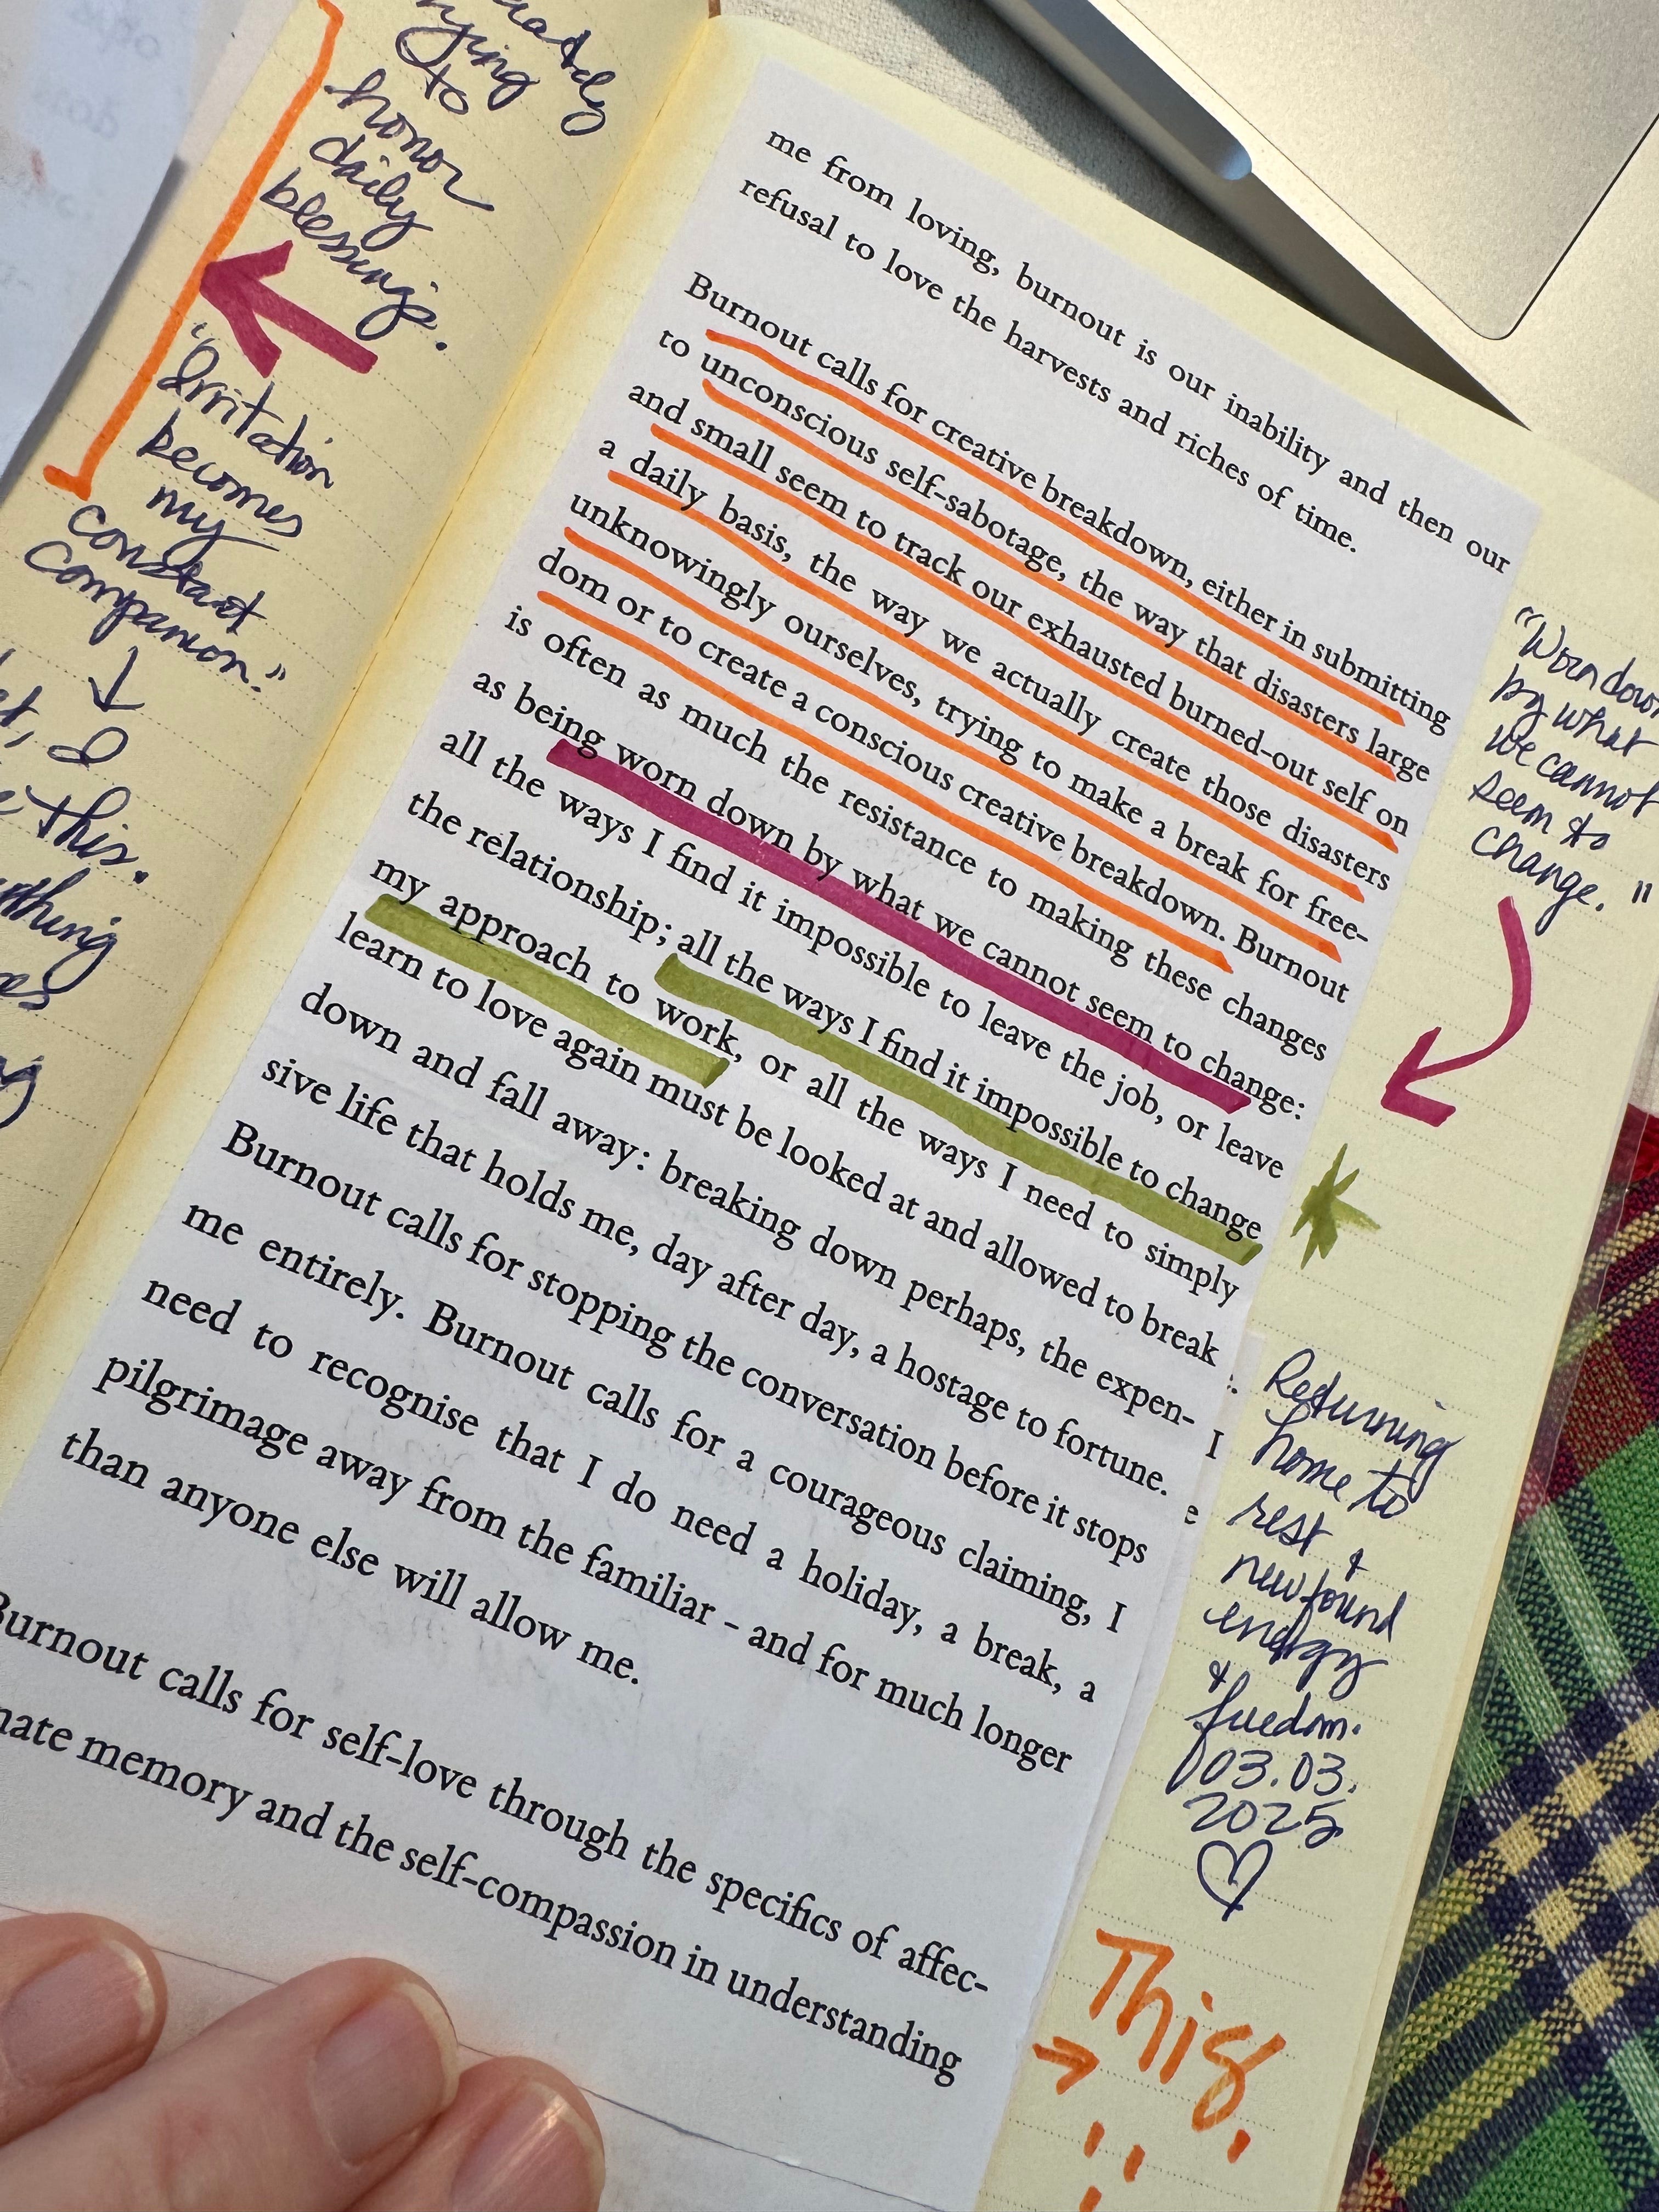 trying
to
honor
daily
blessings.
"Irritation
becomes
my
constant
companion."
I
this.
me from loving, burnout is our inability and then our
refusal to love the harvests and riches of time.
Burnout calls for creative breakdown, either in submitting
to unconscious self-sabotage, the way that disasters large
and small seem to track our exhausted burned-out self on
a daily basis, the way we actually create those disasters
unknowingly ourselves, trying to make a break for free-
dom or to create a conscious creative breakdown. Burnout
is often as much the resistance to making these changes
as being worn down by what we cannot seem to change:
all the ways I find it impossible to leave the job, or leave
the relationship; all the ways I find it impossible to change
my approach to work, or all the ways I need to simply
learn to love again must be looked at and allowed to break
down and fall away: breaking down perhaps, the expen-
sive life that holds me, day after day, a hostage to fortune.
Burnout calls for stopping the conversation before it stops
me entirely. Burnout calls for a courageous claiming, I
need to recognise that I do need a holiday, a break, a
pilgrimage away from the familiar - and for much longer
than anyone else will allow me.
Burnout calls for self-love through the specifics of affec-
nate memory and the self-compassion in understanding
"Worn down
by what
we cannot
seem to
change."
I
e
Returning
home to
rest &
newfound
energy
& freedom.
03.03.
2025
This.